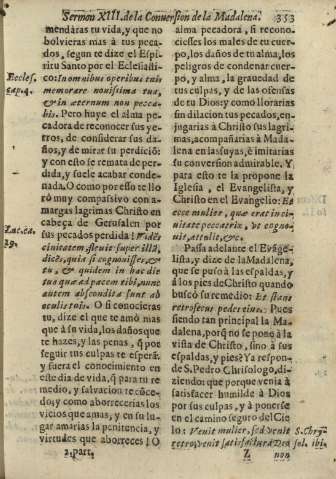 Sermon XIII. de la Conversion de la Madalena. 353
mendáras tu vida, y que no
bolvieras mas à tus peca-
dos, segun te dize el Espi-
ritu Santo por el Eclesiasti-
Eccles. cap. 4.
co: In omnibus operibus tuis
memorare novissima tua,
& in æternum non pecca-
bis. Pero huye el alma pe-
cadora de reconocer sus yer-
ros, de considerar sus da-
ños, y de mirar su perdiciõ
y con esto se remata de per-
dida, y suele acabar conde-
nada. O como por esso te llo
rò muy compassivo con a-
margas lagrimas Christo en
cabeça de Gerusalen por
sus pecados perdida! Vidẽs
Luc. ca. 19.
civitatem, flevit super illã,
dicẽs, quia si cognovisses, &
tu, & quidem in hac die
tua quæ ad pacem tibi, nunc
autem abscondita sunt ab
oculis tuis. O si conocieras
tu, dize el que te amò mas
que à su vida, los daños que
te hazes, y las penas, q̃ por
seguir tus culpas te esperã,
y fuera el conocimiento en
este dia de vida, q̃ para tu re
medio, y salvacion te côce-
do; y como aborrecerias los
vicios que amas, y en su lu-
gar amarias la penitencia, y
virtudes que aborreces! O
2. part.
alma pecadora, si recono-
ciesses los males de tu cuer-
po, los daños de tu alma, los
peligros de condenar cuer-
po, y alma, la gravedad de
tus culpas, y de las ofensas
de tu Dios; y como llorarias
sin dilacion tus pecados, en-
jugarias à Christo sus lagri-
mas, acompañarias à Mada-
lena en las suyas, è imitarias
su conversion admirable. Y
para esto te la propone la
Iglesia, el Evangelista, y
Christo en el Evangelio: Et
ecce mulier, quæ erat in ci-
vitate peccatrix, ut cogno-
vit, attulit, &c.
Passa adelante el Evãge-
lista, y dize de la Madalena,
que se pusó à las espaldas, y
à los pies de Christo quando
buscó su remedio: Et stans
retrò secus pedes eius. Pues
siendo tan principal la Ma-
dalena, porq̃ no se pone à la
vista de Christo, sino à sus
espaldas, y pies? Ya respon-
de S. Pedro Chrisologo, di-
ziendo: que porque venia à
satisfacer humilde à Dios
por sus culpas, y à ponerse
en el camino seguro del Cie
lo: Venit mulier, sed venit
S. Chry sol. ibi.
retrò, venit satisfactura Deo
Z non